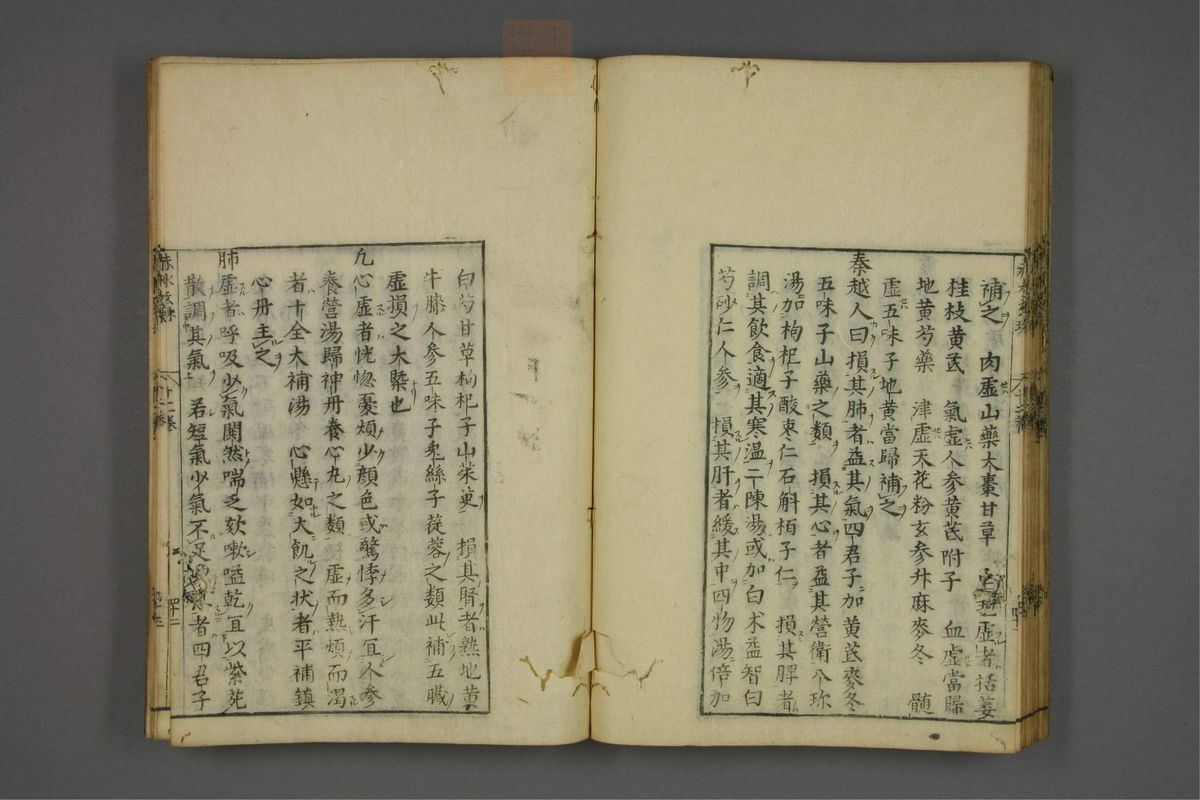 補之 肉虛山藥大棗甘草 虛者括蔞
桂枝黃茋 氣虛人參黃茋附子 血虛當歸
地黃芍藥 津虛天花粉玄參升麻麥冬 髓
虛五味子地黃當歸補之
秦越人曰損其肺者益其氣四君子加黃茋麥冬
五味子山藥之類 損其心者益其營衛八珍
湯加枸杞子酸棗仁石斛栢子仁 損其脾者
調其飲食適其寒温二陳湯或加白朮益智曰
芍砂仁人參 損其肝者緩其中四物湯倍加
白芍甘草枸杞子山茱萸 損其腎者熟地黃
牛膝人參五味子兎絲子蓯蓉之類此補五臓
虛損之大槩也
凡心虛者恍惚憂煩少顏色或驚悸多汗宜人參
養營湯歸神丹養心丸之類 虛而熱煩而渴
者十全大補湯 心懸如大飢之状者平補鎮
心丹主之
肺虛者呼吸少氣閴然喘乏欬嗽嗌乾宜以紫菀
散調其氣 若短氣少氣不足 者四君子